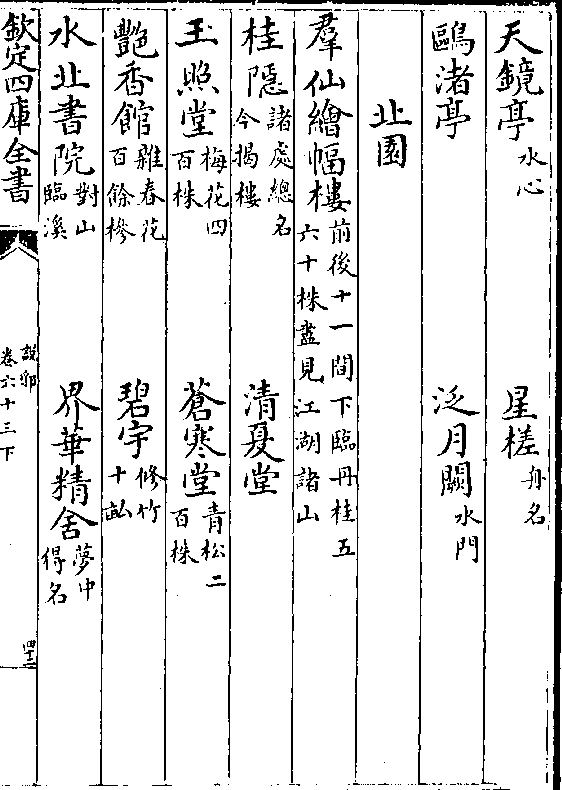 天鏡亭水心　星槎舟名
鷗渚亭　泛月闕水門
北園
羣仙繪幅樓前後十一間下臨丹桂五六十株盡見江湖諸山
桂隱諸處總名今揭樓　清夏堂
玉照堂梅花四百株　蒼寒堂青松二百株
艷香館雜春花百餘椮　碧宇修竹十畝
水北書院對山臨溪　界華精舍夢中得名
欽定四庫全書
說郛
卷六十三下